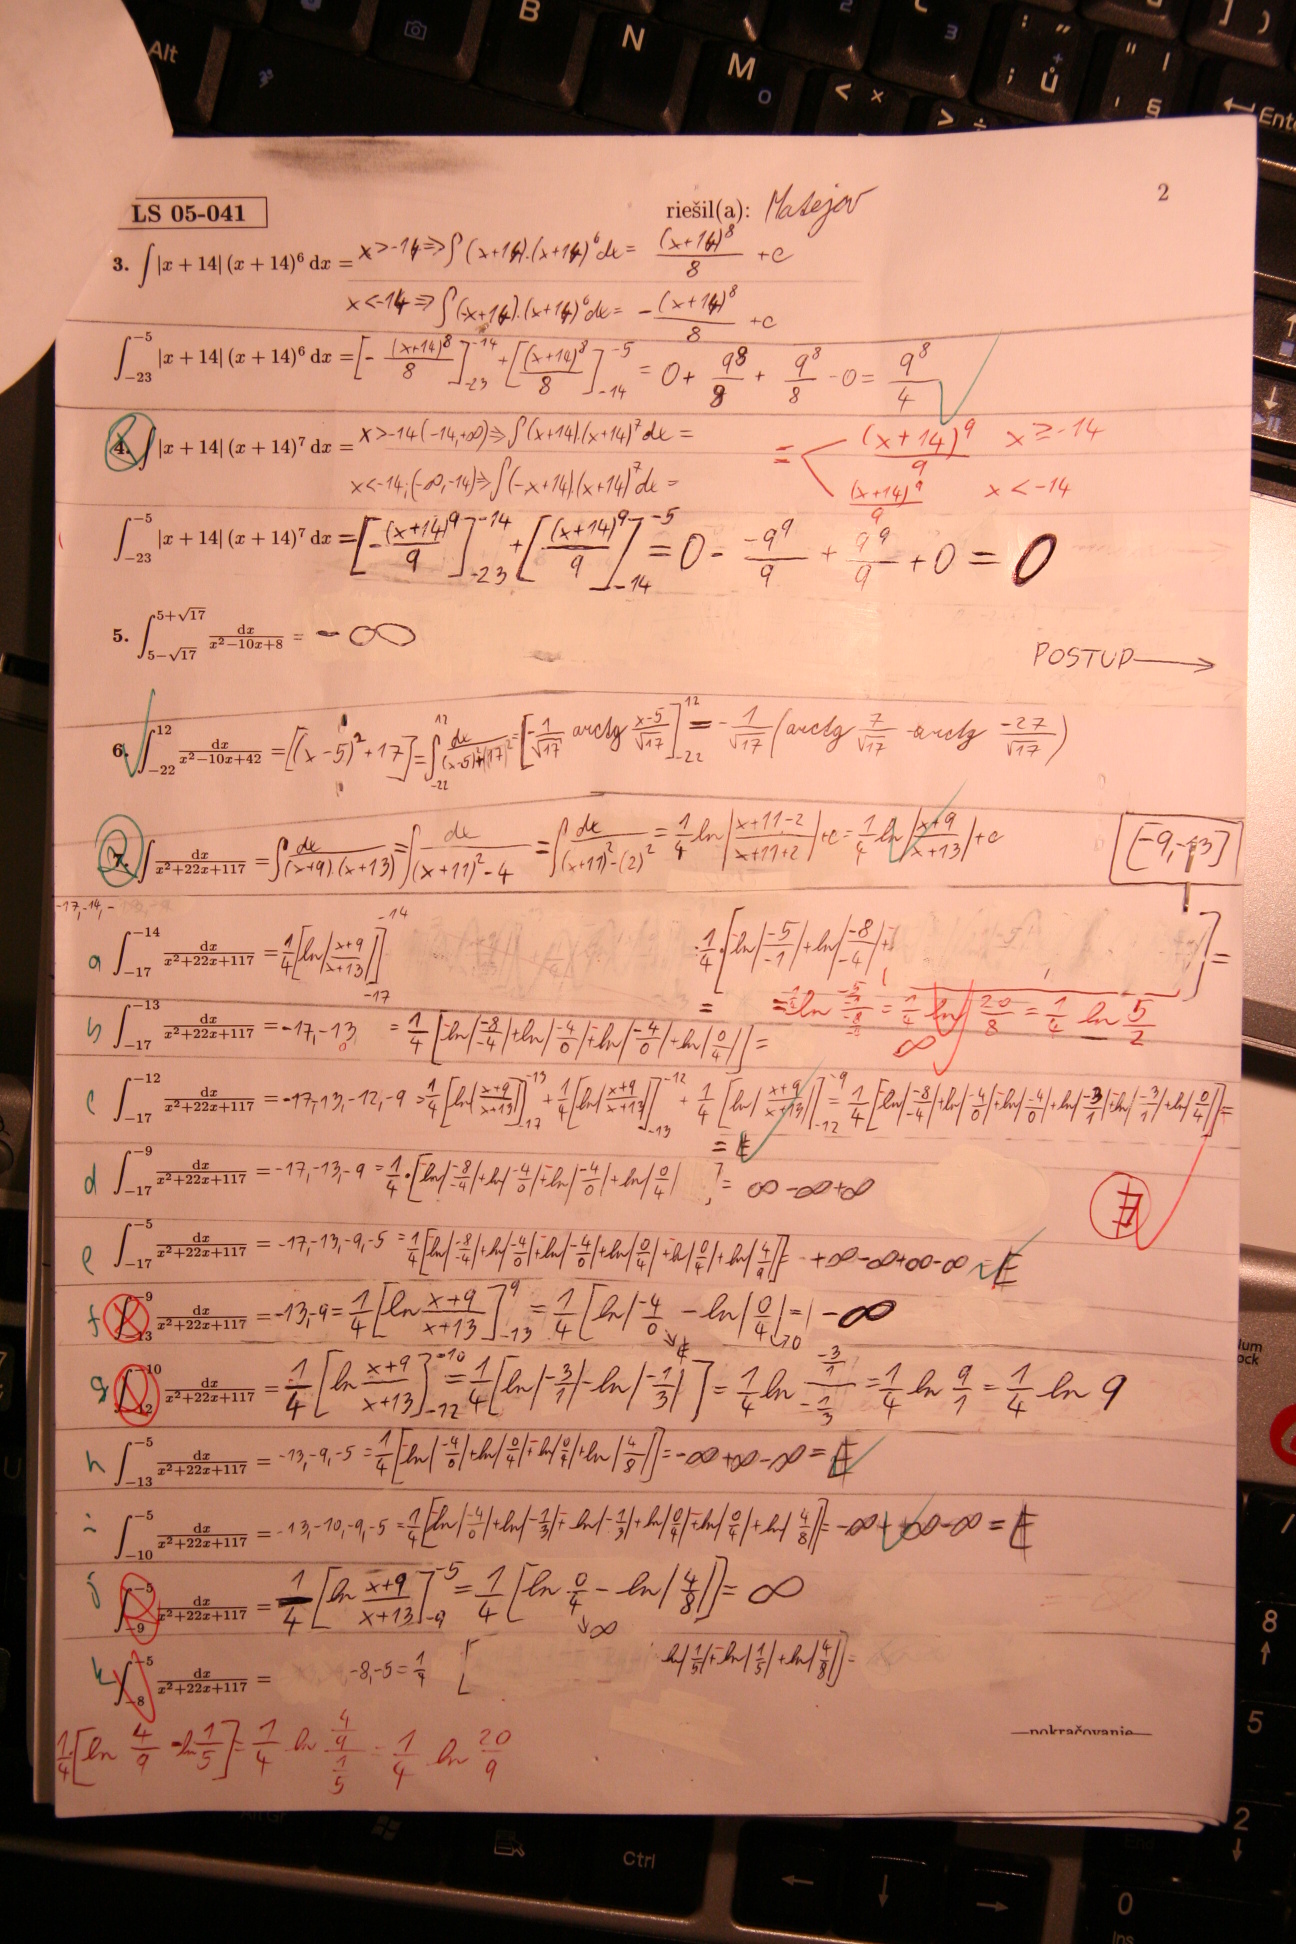 LS 05-041
riešil(a): Matejov
2
3. ∫ |x + 14| (x + 14)^6 dx = x > -14 ⇒ ∫ (x+14).(x+14)^6 dx = (x+14)^8/8 + c
x < -14 ⇒ ∫ (-x+14).(x+14)^6 dx = - (x+14)^8/8 + c
∫_{-23}^{-5} |x + 14| (x + 14)^6 dx = [- (x+14)^8/8]_{-23}^{-14} + [(x+14)^8/8]_{-14}^{-5} = 0 + 9^8/8 + 9^8/8 - 0 = 9^8/4
4. ∫ |x + 14| (x + 14)^7 dx = x > -14 (-14, +∞) ⇒ ∫ (x+14).(x+14)^7 dx =
= (x+14)^9/9 x ≥ -14
x < -14; (-∞, -14) ⇒ ∫ (-x+14).(x+14)^7 dx =
(x+14)^9/9 x < -14
∫_{-23}^{-5} |x + 14| (x + 14)^7 dx = [- (x+14)^9/9]_{-23}^{-14} + [(x+14)^9/9]_{-14}^{-5} = 0 - -9^9/9 + 9^9/9 + 0 = 0
5. ∫_{5-√17}^{5+√17} dx/(x²-10x+8) = - ∞
POSTUP →
6. ∫_{-22}^{12} dx/(x²-10x+42) = [(x-5)² + 17] = ∫_{-22}^{12} dx/((x-5)²+(√17)²) = [-1/√17 arctg (x-5)/√17]_{-22}^{12} = - 1/√17 (arctg 7/√17 - arctg -27/√17)
7. ∫ dx/(x²+22x+117) = ∫ dx/((x+9).(x+13)) = ∫ dx/((x+11)²-4) = ∫ dx/((x+11)²-(2)²) = 1/4 ln |(x+11-2)/(x+11+2)| + c = 1/4 ln |(x+9)/(x+13)| + c
[-9, -13]
-17, -14, -
a ∫_{-17}^{-14} dx/(x²+22x+117) = 1/4 [ln |(x+9)/(x+13)|]_{-17}^{-14} 1/4 . [-ln |-5/-1| + ln |-8/-4| ] =
= 1/4 ln 20/8 = 1/4 ln 5/2
b ∫_{-17}^{-13} dx/(x²+22x+117) = -17, -13 = 1/4 [-ln |-8/-4| + ln |-4/0| - ln |-4/0| + ln |0/4|] = ∞
c ∫_{-17}^{-12} dx/(x²+22x+117) = -17, -13, -12, -9 = 1/4 [ln |(x+9)/(x+13)|]_{-17}^{-13} + 1/4 [ln |(x+9)/(x+13)|]_{-13}^{-12} + 1/4 [ln |(x+9)/(x+13)|]_{-12}^{-9} = 1/4 [-ln |-8/-4| + ln |-4/0| - ln |-4/0| + ln |-3/1| - ln |-3/1| + ln |0/4|] =
= ∄
d ∫_{-17}^{-9} dx/(x²+22x+117) = -17, -13, -9 = 1/4 . [-ln |-8/-4| + ln |-4/0| - ln |-4/0| + ln |0/4| ] = ∞ - ∞ + ∞
∄
e ∫_{-17}^{-5} dx/(x²+22x+117) = -17, -13, -9, -5 = 1/4 [-ln |-8/-4| + ln |-4/0| - ln |-4/0| + ln |0/4| - ln |0/4| + ln |4/9|] = +∞ - ∞ + ∞ - ∞ = ∄
f ∫_{-13}^{-9} dx/(x²+22x+117) = -13, -9 = 1/4 [ln (x+9)/(x+13)]_{-13}^{9} = 1/4 [ln |-4/0 - ln |0/4| = | - ∞
g ∫_{-12}^{-10} dx/(x²+22x+117) = 1/4 [ln (x+9)/(x+13)]_{-12}^{-10} = 1/4 [ln |-3/1| - ln |-1/3|] = 1/4 ln (-3/1)/(-1/3) = 1/4 ln 9/1 = 1/4 ln 9
h ∫_{-13}^{-5} dx/(x²+22x+117) = -13, -9, -5 = 1/4 [-ln |-4/0| + ln |0/4| - ln |0/4| + ln |4/8|] = -∞ + ∞ - ∞ = ∄
i ∫_{-10}^{-5} dx/(x²+22x+117) = -13, -10, -9, -5 = 1/4 [-ln |-4/0| + ln |-1/3| - ln |-1/3| + ln |0/4| - ln |0/4| + ln |4/8|] = -∞ + ∞ - ∞ = ∄
j ∫_{-9}^{-5} dx/(x²+22x+117) = 1/4 [ln (x+9)/(x+13)]_{-9}^{-5} = 1/4 [ln 0/4 - ln |4/8|] = ∞
k ∫_{-8}^{-5} dx/(x²+22x+117) = -8, -5 = 1/4 [ ln |1/5| - ln |1/5| + ln |4/8|] =
—pokračovanie—
1/4 [ln 4/9 - ln 1/5] = 1/4 ln (4/9)/(1/5) = 1/4 ln 20/9
Alt
B
N
M
Enter
Ctrl
8
5
2
0
Ins
End